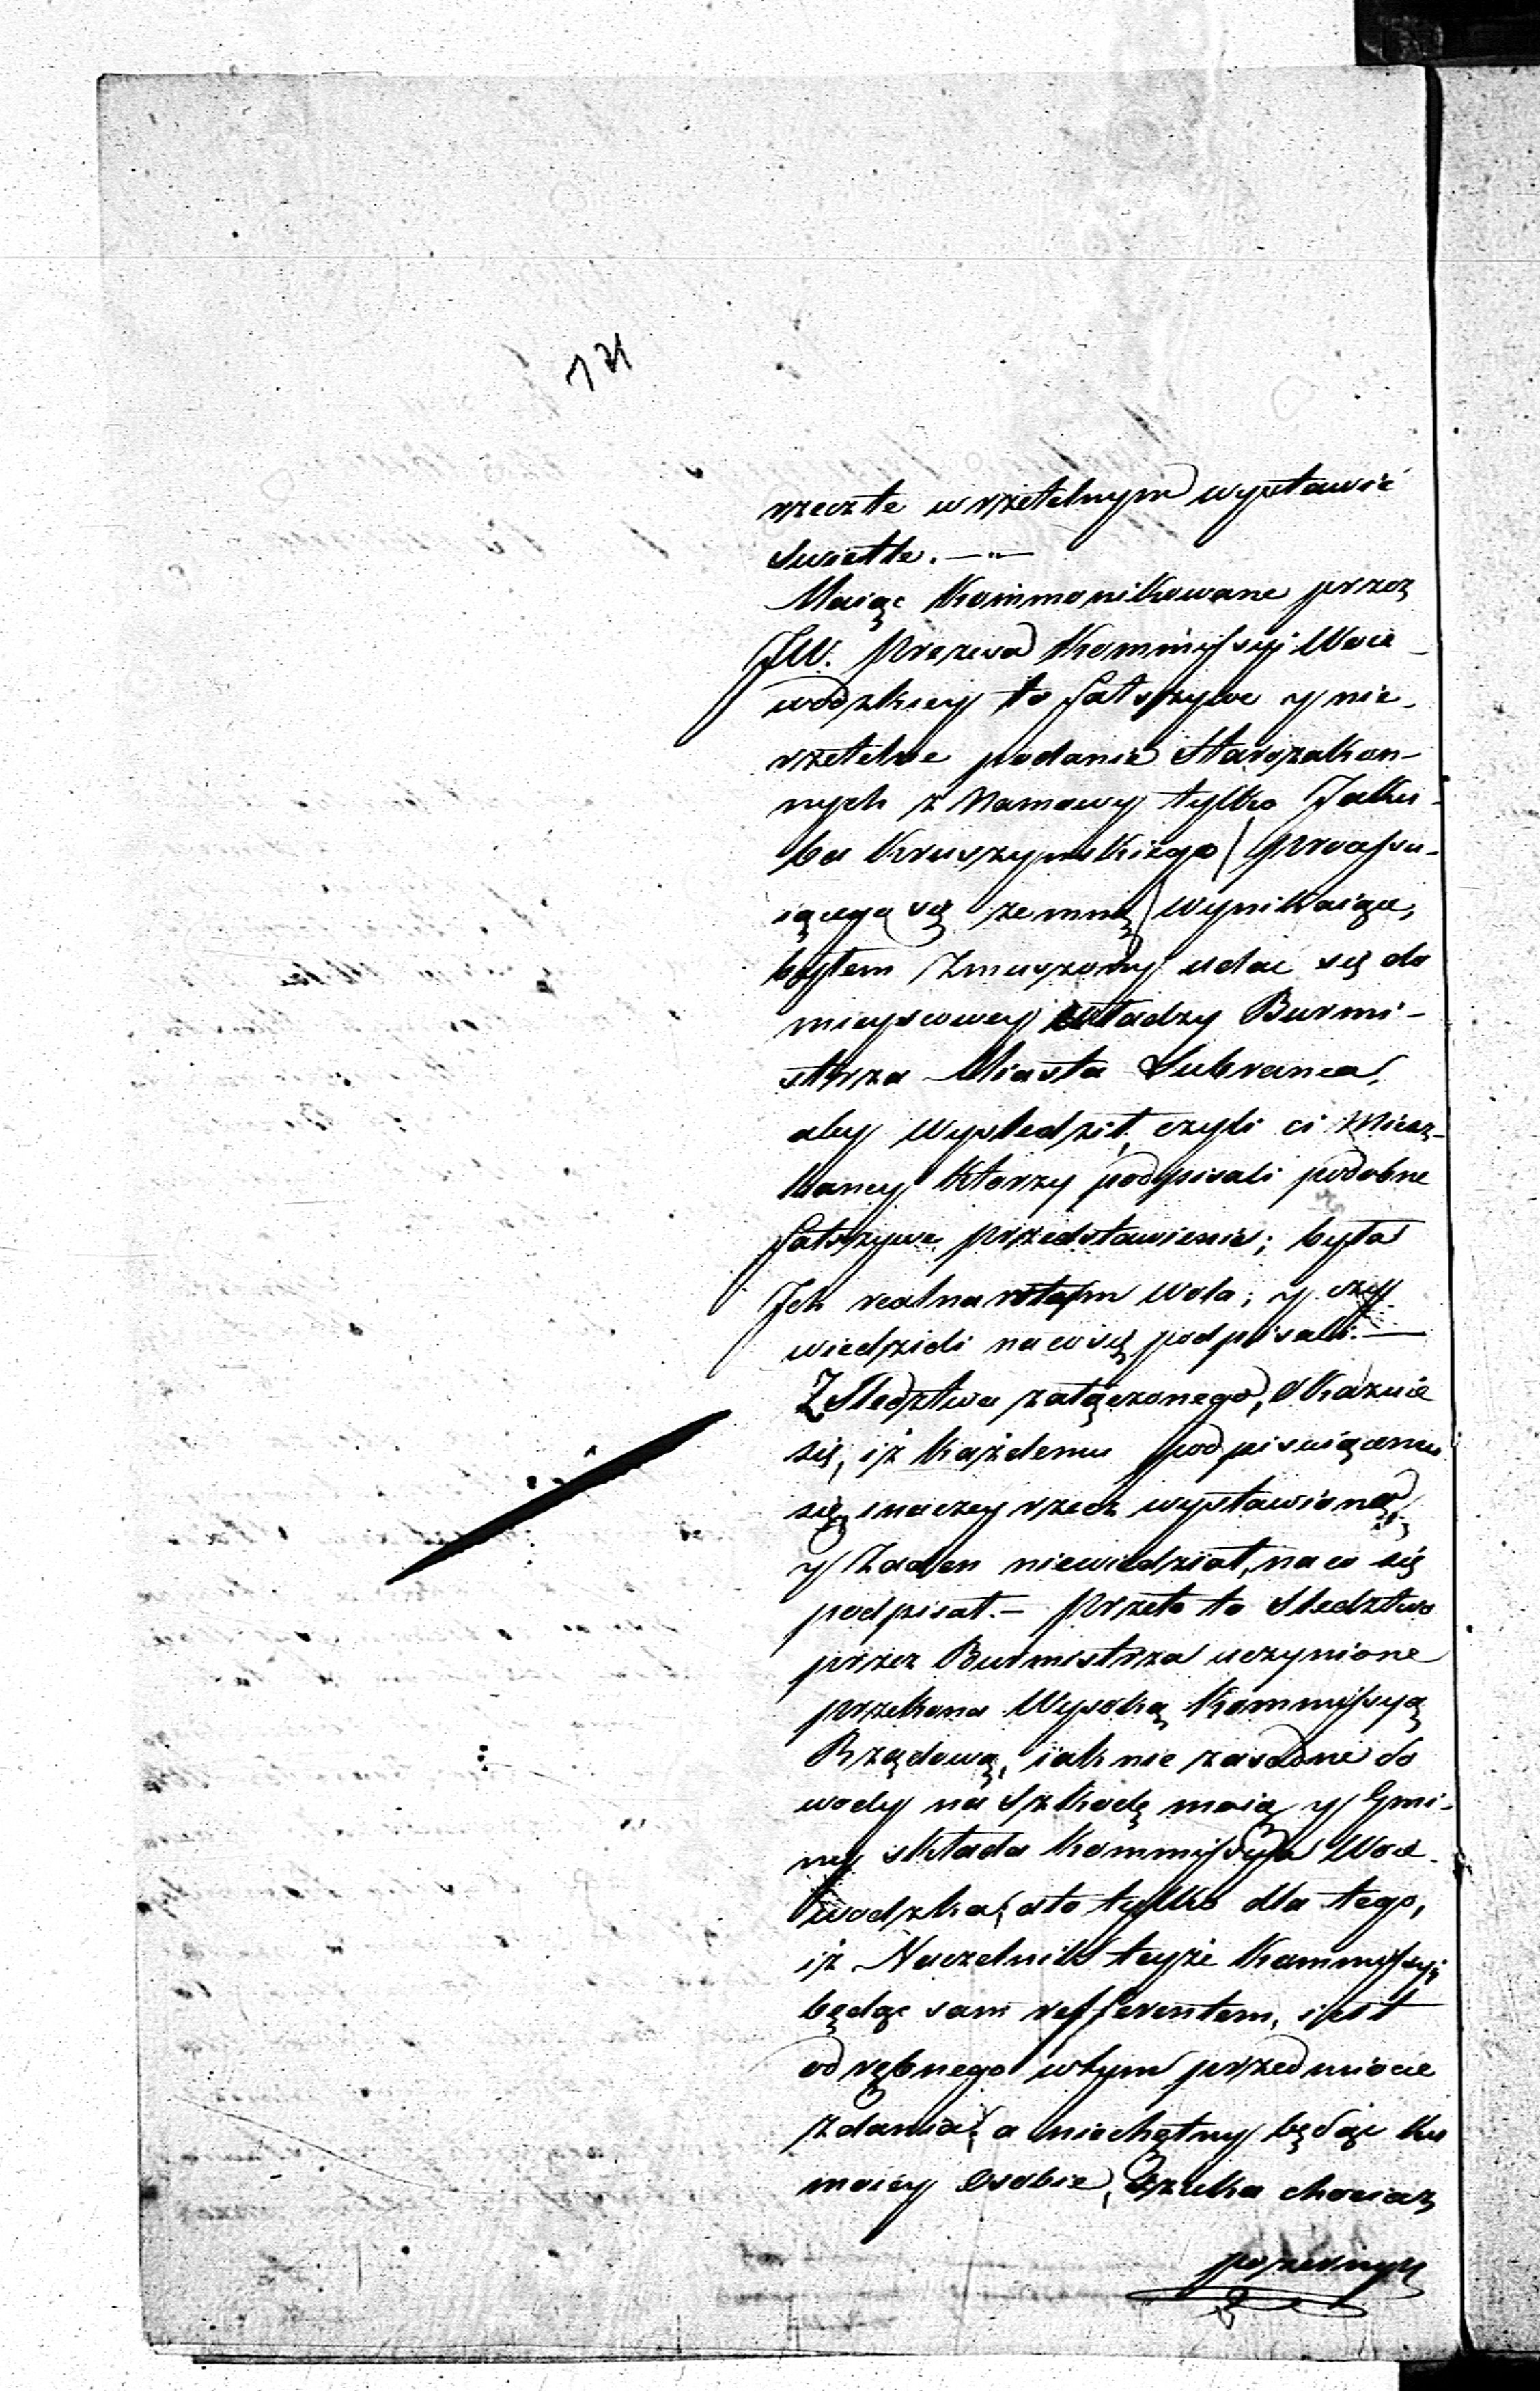 171
rzecz te w rzetelnym wystawić
Swietle. —"—
Maiąc Kommonikowane przez
JW. Prezesa Kommissyi Woie-
wodzkiey to fałszywe y nie-
rzetelne podanie Starozakon-
nych z Namowy tylko Jaku-
ba Kruszynskiego / Processu-
iącego się ze mną / Wynikaiące,
byłem Zmuszony udać się do
mieyscowey Władzy Burmi-
strza Miasta Lubranca,
aby Wysledził, czyli ci Miesz-
kancy Ktorzy podpisali podobne
fałszywe przedstawienie; była
Jch realna w tym Wola; y czy
wiedzieli na co się podpisali. —
Z Sledztwa załączonego, Okazuie
się, iż każdemu podpisuiącemu
się inaczey rzecz wystawiono,
y Zaden niewiedział, na co się
podpisał. — Przeto to Sledztwo
przez Burmistrza uczynione
przekona Wysoką Kommissyą
Rządową, iak nie zasadne do
wody na Szkodę moią y Gmi-
ny składa Kommissya Woie-
wodzka; a to tylko dla tego,
iż Naczelnik teyże Kommissyi
będąc sam refferentem, iest
odrębnego w tym przedmiocie
zdania; a niechętny będąc ku
moiey Osobie, Szuka chociaz
pozornych